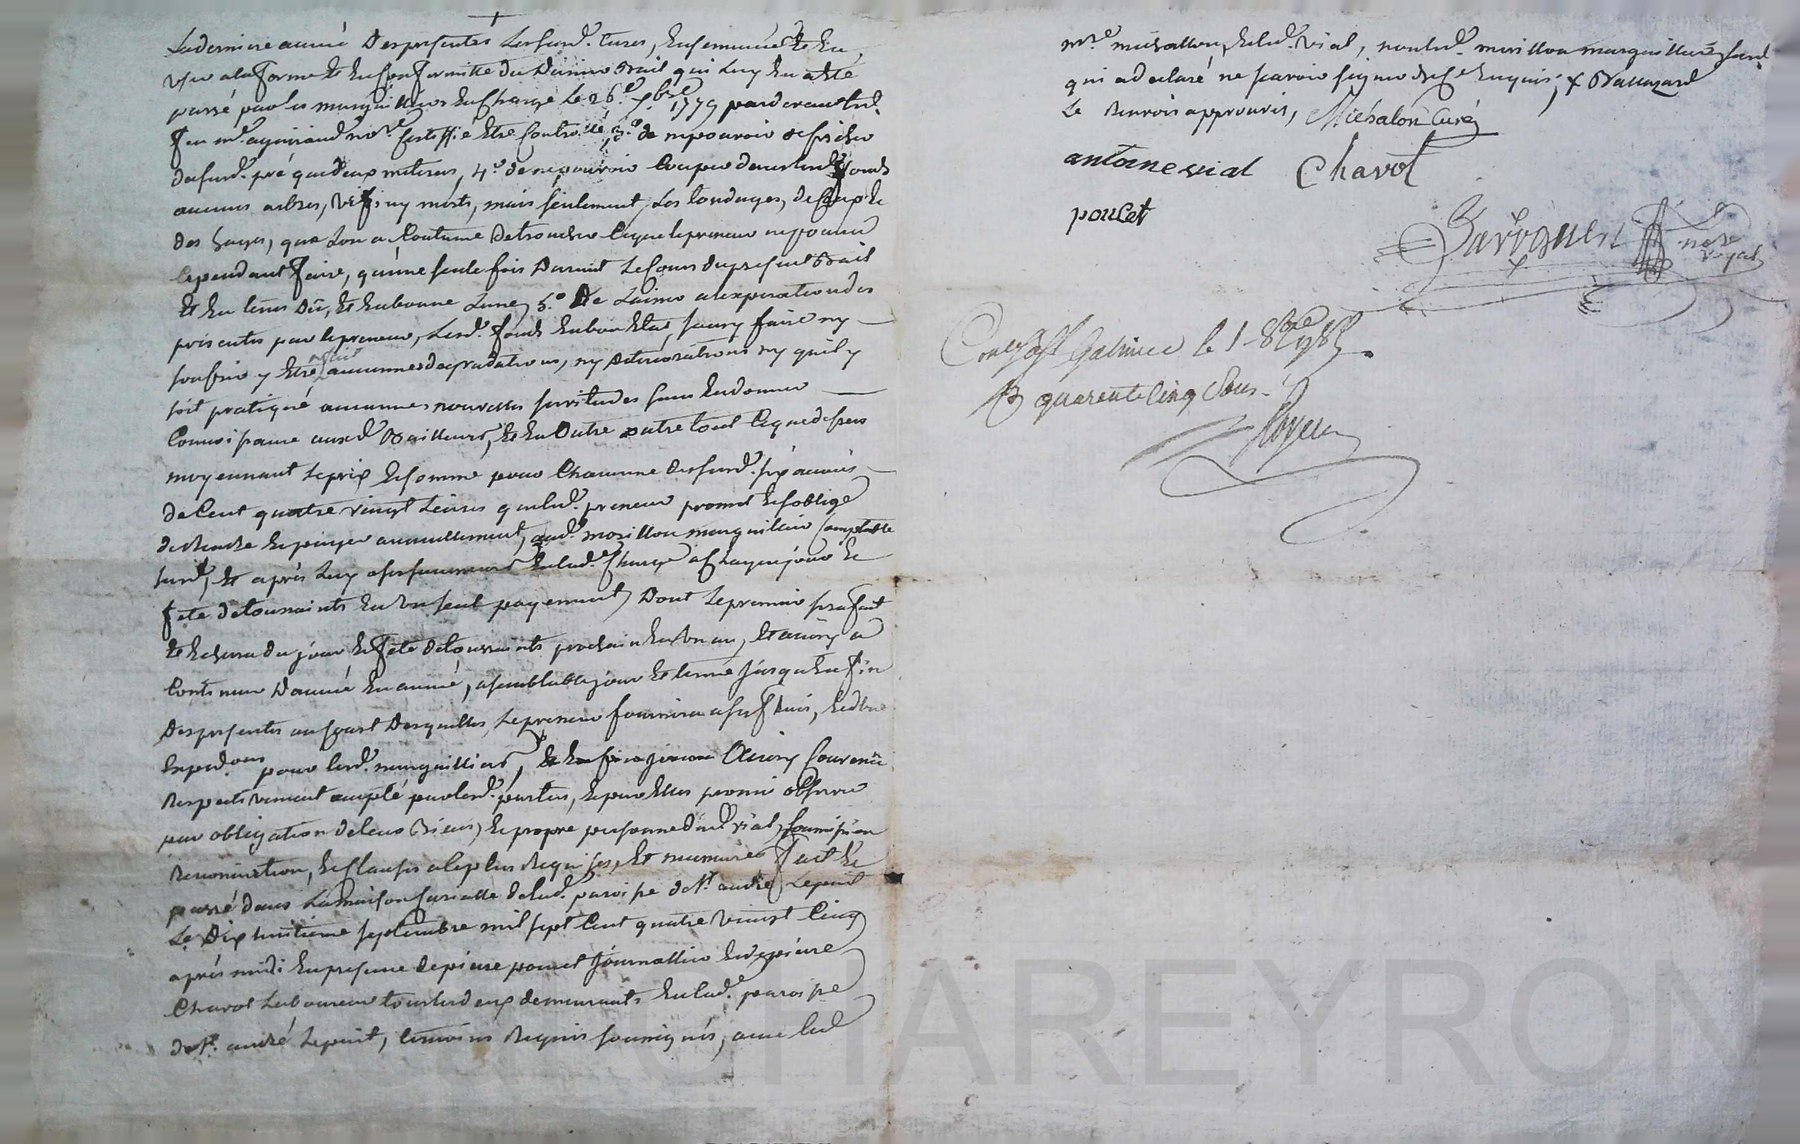 La derniere année des presentes lesusd. cures, Ensemence Et En
usé a la forme Et En Conformitté du dernier Bail qui luy En a Eté
passé par les marguilliers En Charge Le 26e 7bre 1779 pardevant led.
feu me aguiraud nore Certiffié Etre Controllé, 3o de ne pouvoir deffricher
dusud. pré que deux metterees, 4o de ne pouvoir Couper dans lesd. fonds
aucuns arbres, vifs ny morts, mais seulement, Les bondages, de Coupe Et
des hayes, que l'on a Coutume de trancher Ce que le preneur ne poura
Cependant faire, qu'une seule fois Durant Le Cours du present Bail
Et En tems Dû, Et En bonne Lune, 5o De Laisser a l'expiration des
presentes par le preneur, Lesd. fonds En bon Etat sans y faire ny
souffrir y Etre fait aucunnes degradations, ny deteriorations ny qu'il y
soit pratiqué aucunnes nouvelles servitudes sans En donner
Connoissance auxd. Bailleurs, Et En Outre outre tout Ce que dessus
moyennant Le prix Et somme pour Chacunne desusd. six années
de Cent quatre vingt Livres que led. preneur promet Et s'oblige
de Rendre Et payer annuellement, aud. morillon marguillier Comptable
susd., Et après Luy a ses successeurs En lad. Charge a Chaque jour Et
fete de toussaints En un seul payement, Dont Le premier sera fait
Et Echera du jour Et fete de toussaints prochain En un an, Et ainsy a
Continuer D'année En année, a semblable jour Et terme Jusqu'a En fin
Des presentes au sujet Desquelles, Le preneur fournira a ses frais,
Exped.ons pour lesd. marguilliers, Ainsy Convenû
Respectivement accepté par lesd. parties, Et par Elles promis observer
par obligation de leurs Biens, Et propre personne dud. vial, soumission
Renonciation, Et Clauses a Ce plus Requises, Et necessaires Fait Et
passé dans La maison Curialle de lad. paroisse de St. andré, Lepuit
Le Dix huitieme septembre mil sept Cent quatre vingt Cinq
après midi En presence de pierre poncet Journallier Et de pierre
Chavot Laboureur tous les deux demeurants En lad. paroisse
de St. andré Lepuit, temoins Requis soussignés, avec led
mre michallon, Et led. vial, non led. morillon marguillier susd.
qui a declaré ne savoir signer de Ce Enquis, x Ballazard
Le Renvois approuvés, Michalon Curé
antoine vial Chavot
poncet
nore royal
le 1 8bre 1785
R quarente Cinq Sous.